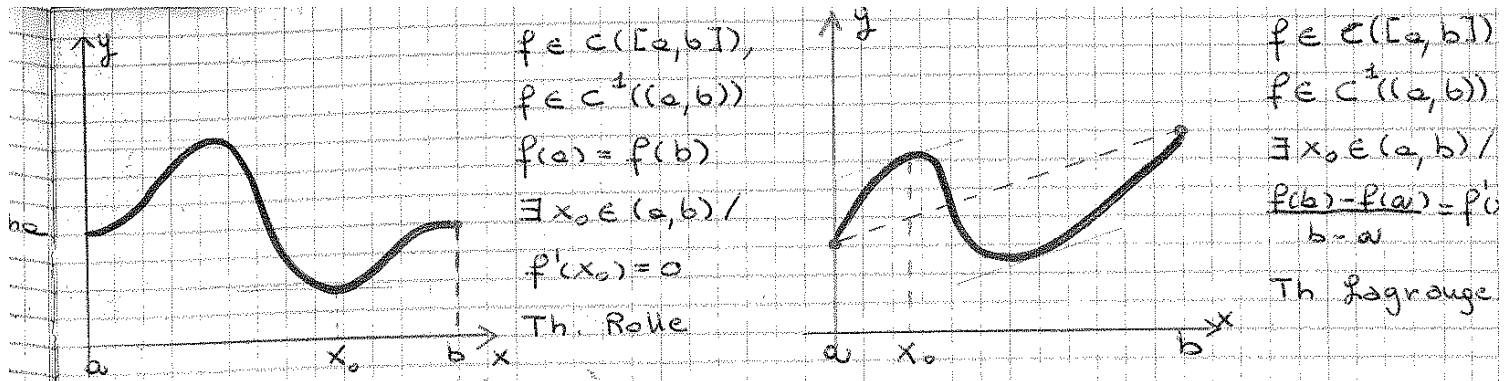 y
f ∈ C([a,b]),
f ∈ C¹((a,b))
f(a) = f(b)
∃ x₀ ∈ (a,b) /
f'(x₀) = 0
Th. Rolle
a
x₀
b
x
y
f ∈ C([a,b])
f ∈ C¹((a,b))
∃ x₀ ∈ (a,b) /
f(b) - f(a)
b - a
= f'(
Th Lagrange
a
x₀
b
x